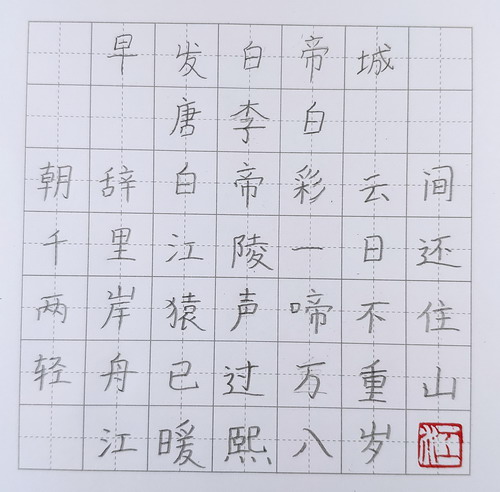 早发白帝城
唐李白
朝辞白帝彩云间
千里江陵一日还
两岸猿声啼不住
轻舟已过万重山
江暖熙八岁
江